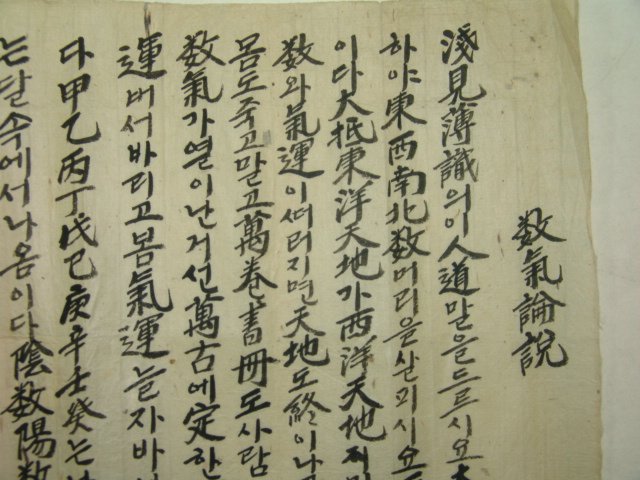 数氣論說
淺見薄識의이人道말을드르시요
하야東西南北数머리을살피시요
이다大抵東洋天地가西洋天地
数와氣運이떠러지면天地도終이나
몸도죽고말고萬卷書冊도사람
数氣가열이난거선萬古에定한
運버서바리고봄氣運늘자바
다甲乙丙丁戊己庚辛壬癸는
는달속에서나옴이다陰数陽数